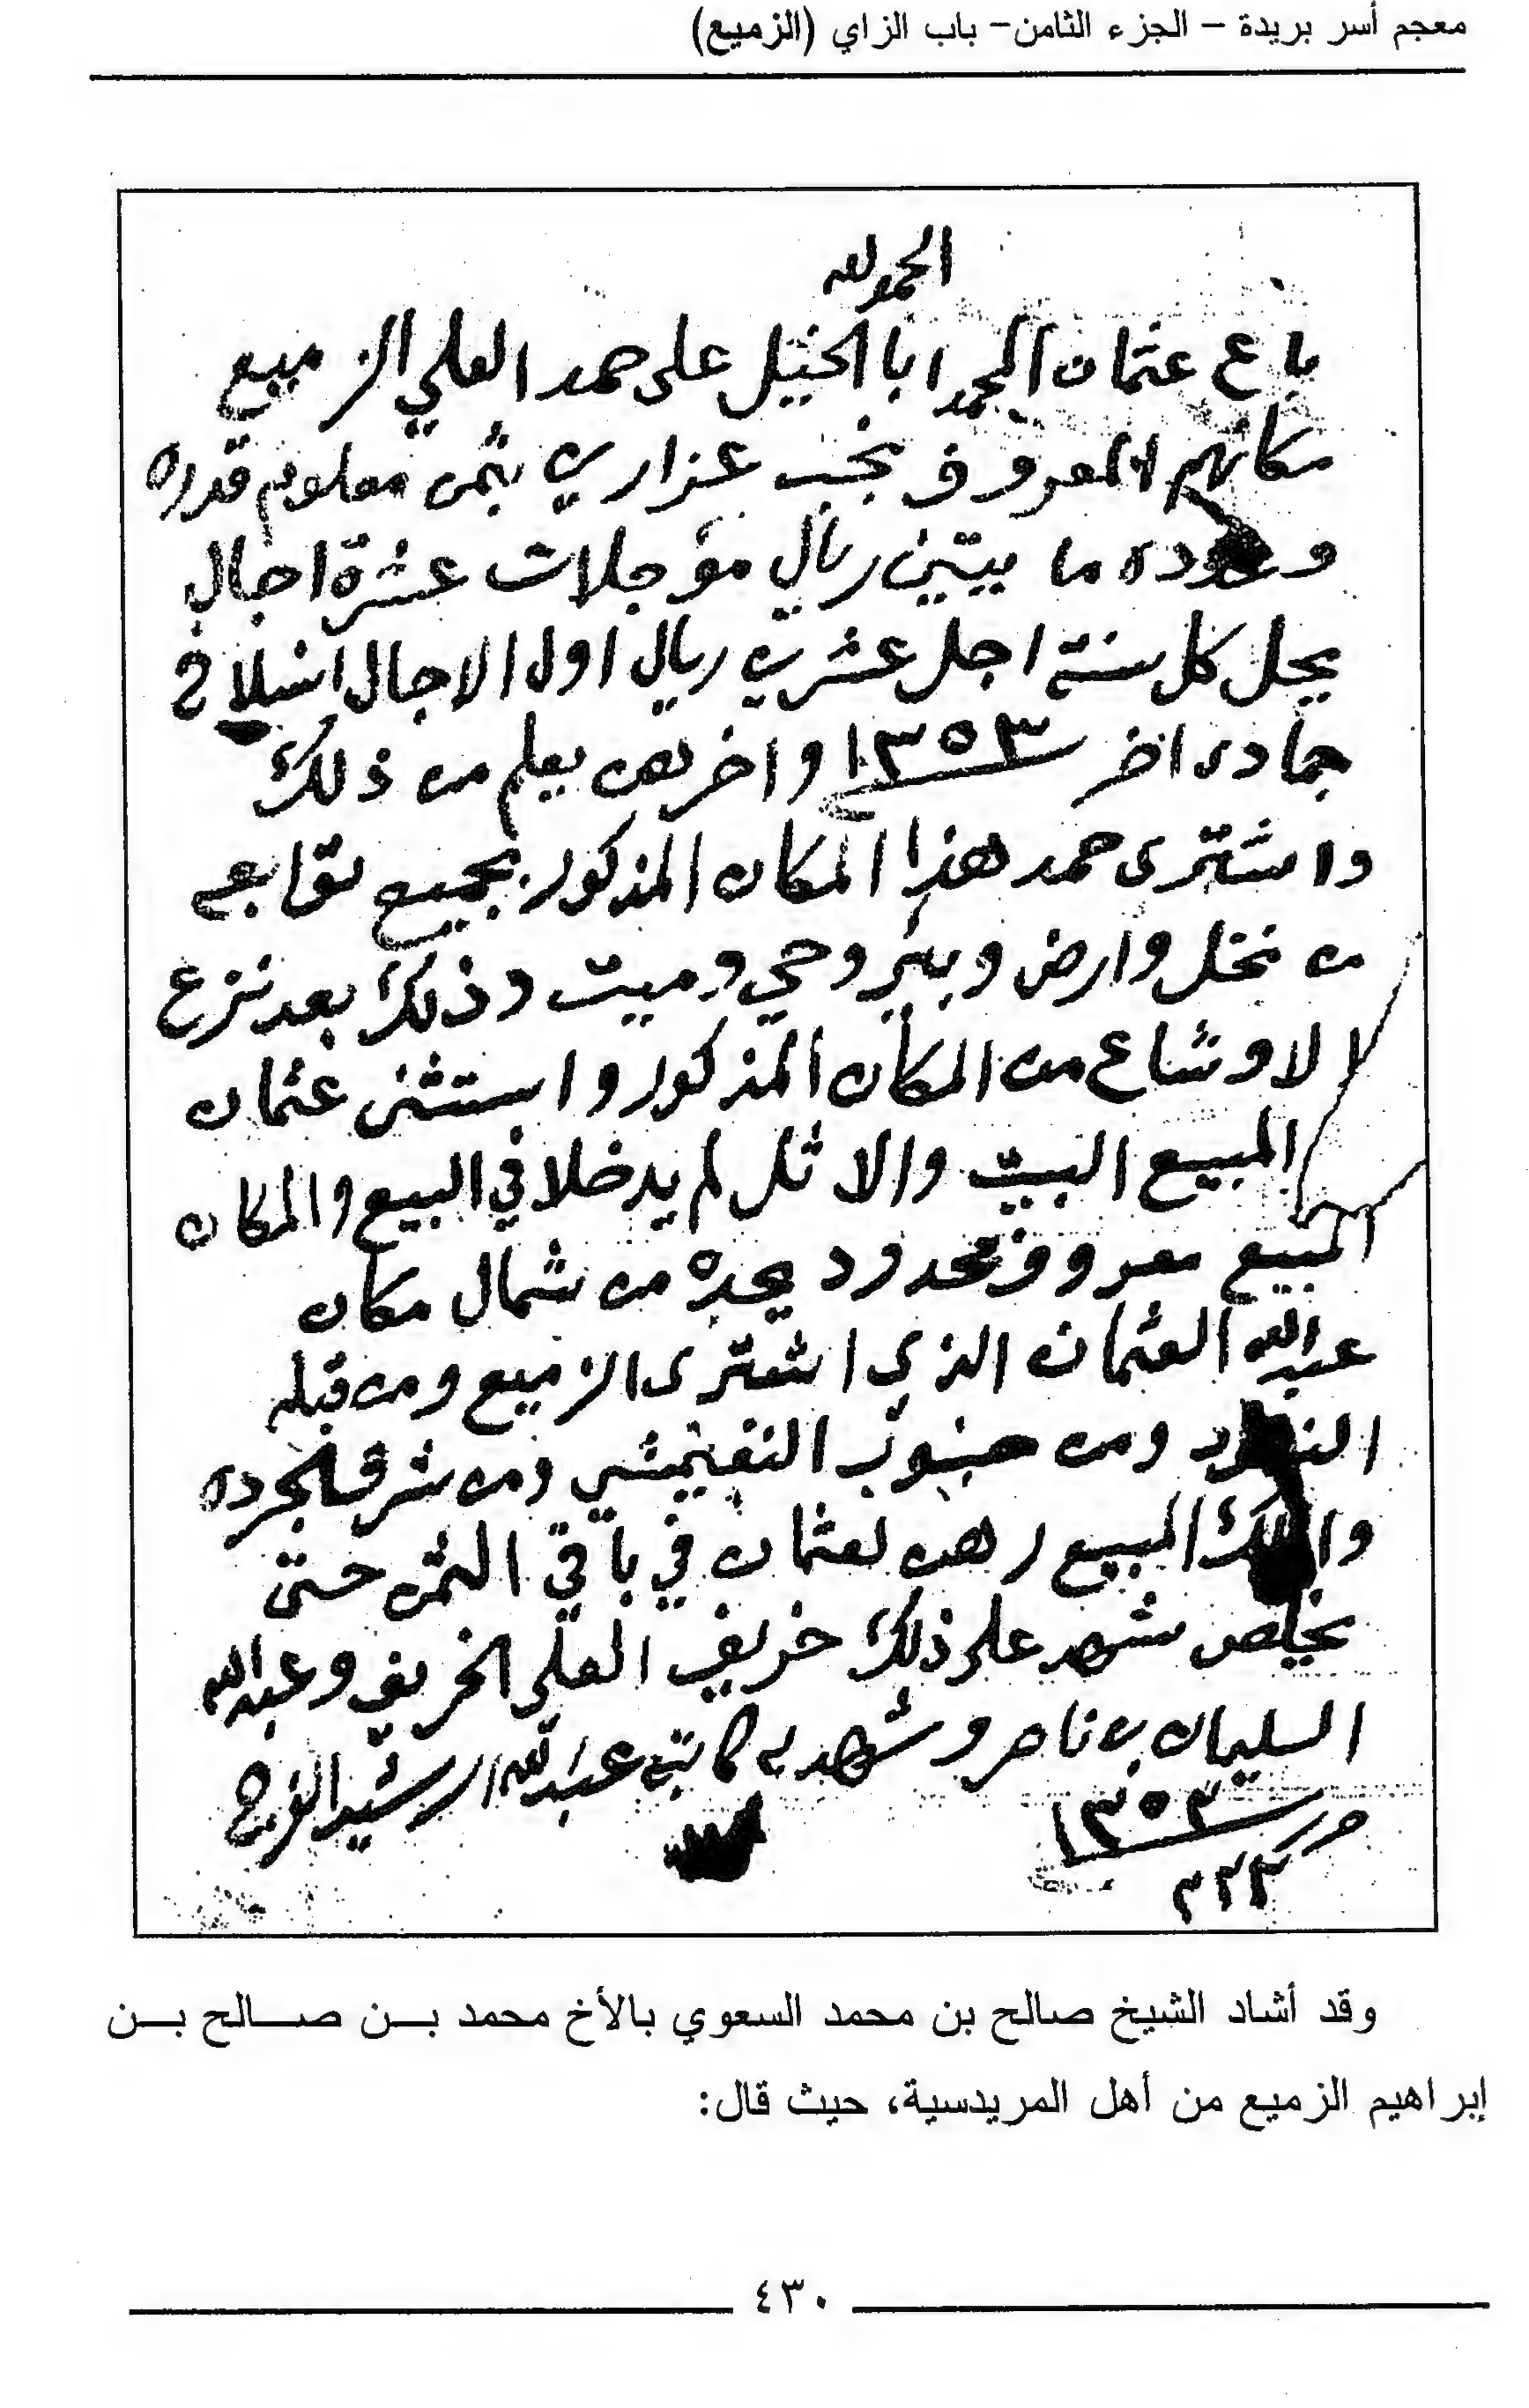 معجم أسر بريدة – الجزء الثامن– باب الزاي (الزميع)
الحمد لله
باع عثمان المحمد ابا الخيل على حمد العلي الزميع
مكانهم المعروف بخب عزاري بثمن معلوم قدره
وعدده مايتين ريال مؤجلات عشرة اجال
يحل كل سنة اجل عشرين ريال اول الاجال انسلاخ
جمادى اخر ١٣٥٣ واخرهن يعلم من ذلك
واشترى حمد هذا المكان المذكور بجميع توابعه
من نخل وارض وبير وحي وميت وذلك بعد نزع
الاوشاع من المكان المذكور واستثنى عثمان
المبيع البيت والاثل لم يدخلا في البيع والمكان
المبيع معروف محدود يحده من شمال مكان
عبدالله العثمان الذي اشترى الزميع ومن قبله
النفود ومن جنوب النغيمشي ومن شرق الجرده
والملك المبيع رهن لعثمان في باقي الثمن حتى
يخلص شهد على ذلك خريف العلي الخريف وعبدالله
السليمان بن ناصر وشهد به كاتبه عبدالله الرشيد الفرج
حرر ١٣٥٣
وقد أشاد الشيخ صالح بن محمد السعوي بالأخ محمد بن صالح بن
إبراهيم الزميع من أهل المريدسية، حيث قال:
٤٣٠